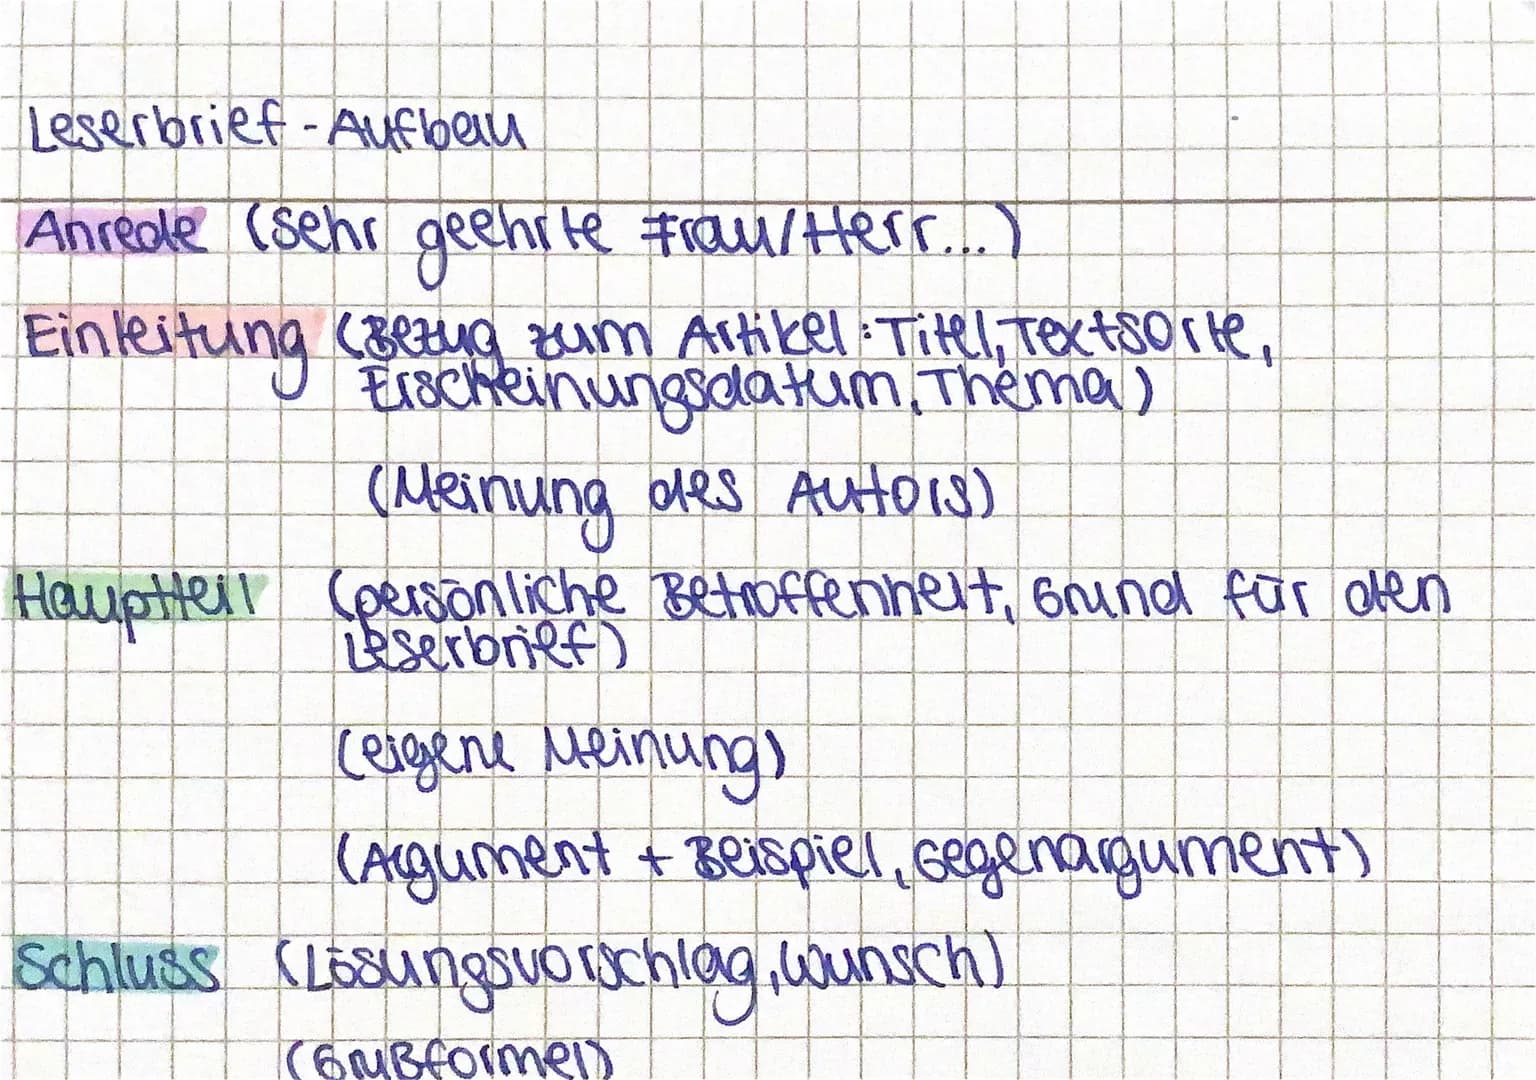 Leserbrief - Aufbau
Anrede (Sehr geehrte Frau/Herr...)
Einleitung (Bezug zum Artikel: Titel, Textsorte,
Erscheinungsdatum, Thema)
(Meinung des Autors)
Hauptteil (persönliche Betroffenheit, Grund für den
Leserbrief)
(eigene Meinung)
(Argument + Beispiel, Gegenargument)
Schluss (Lösungsvorschlag, Wunsch)
(Grußformel)